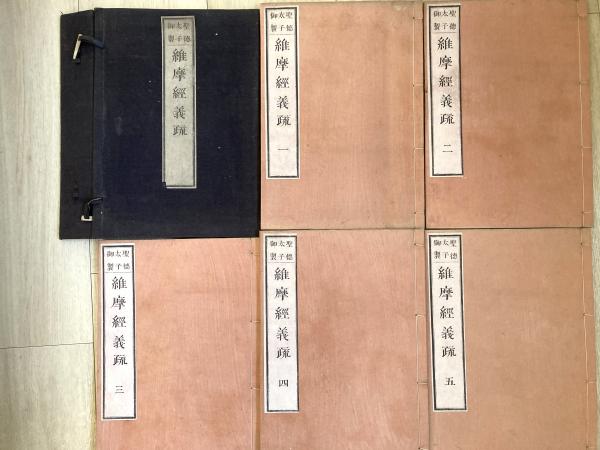 聖德太子御製
維摩經義疏
聖德太子御製
維摩經義疏 一
聖德太子御製
維摩經義疏 二
聖德太子御製
維摩經義疏 三
聖德太子御製
維摩經義疏 四
聖德太子御製
維摩經義疏 五